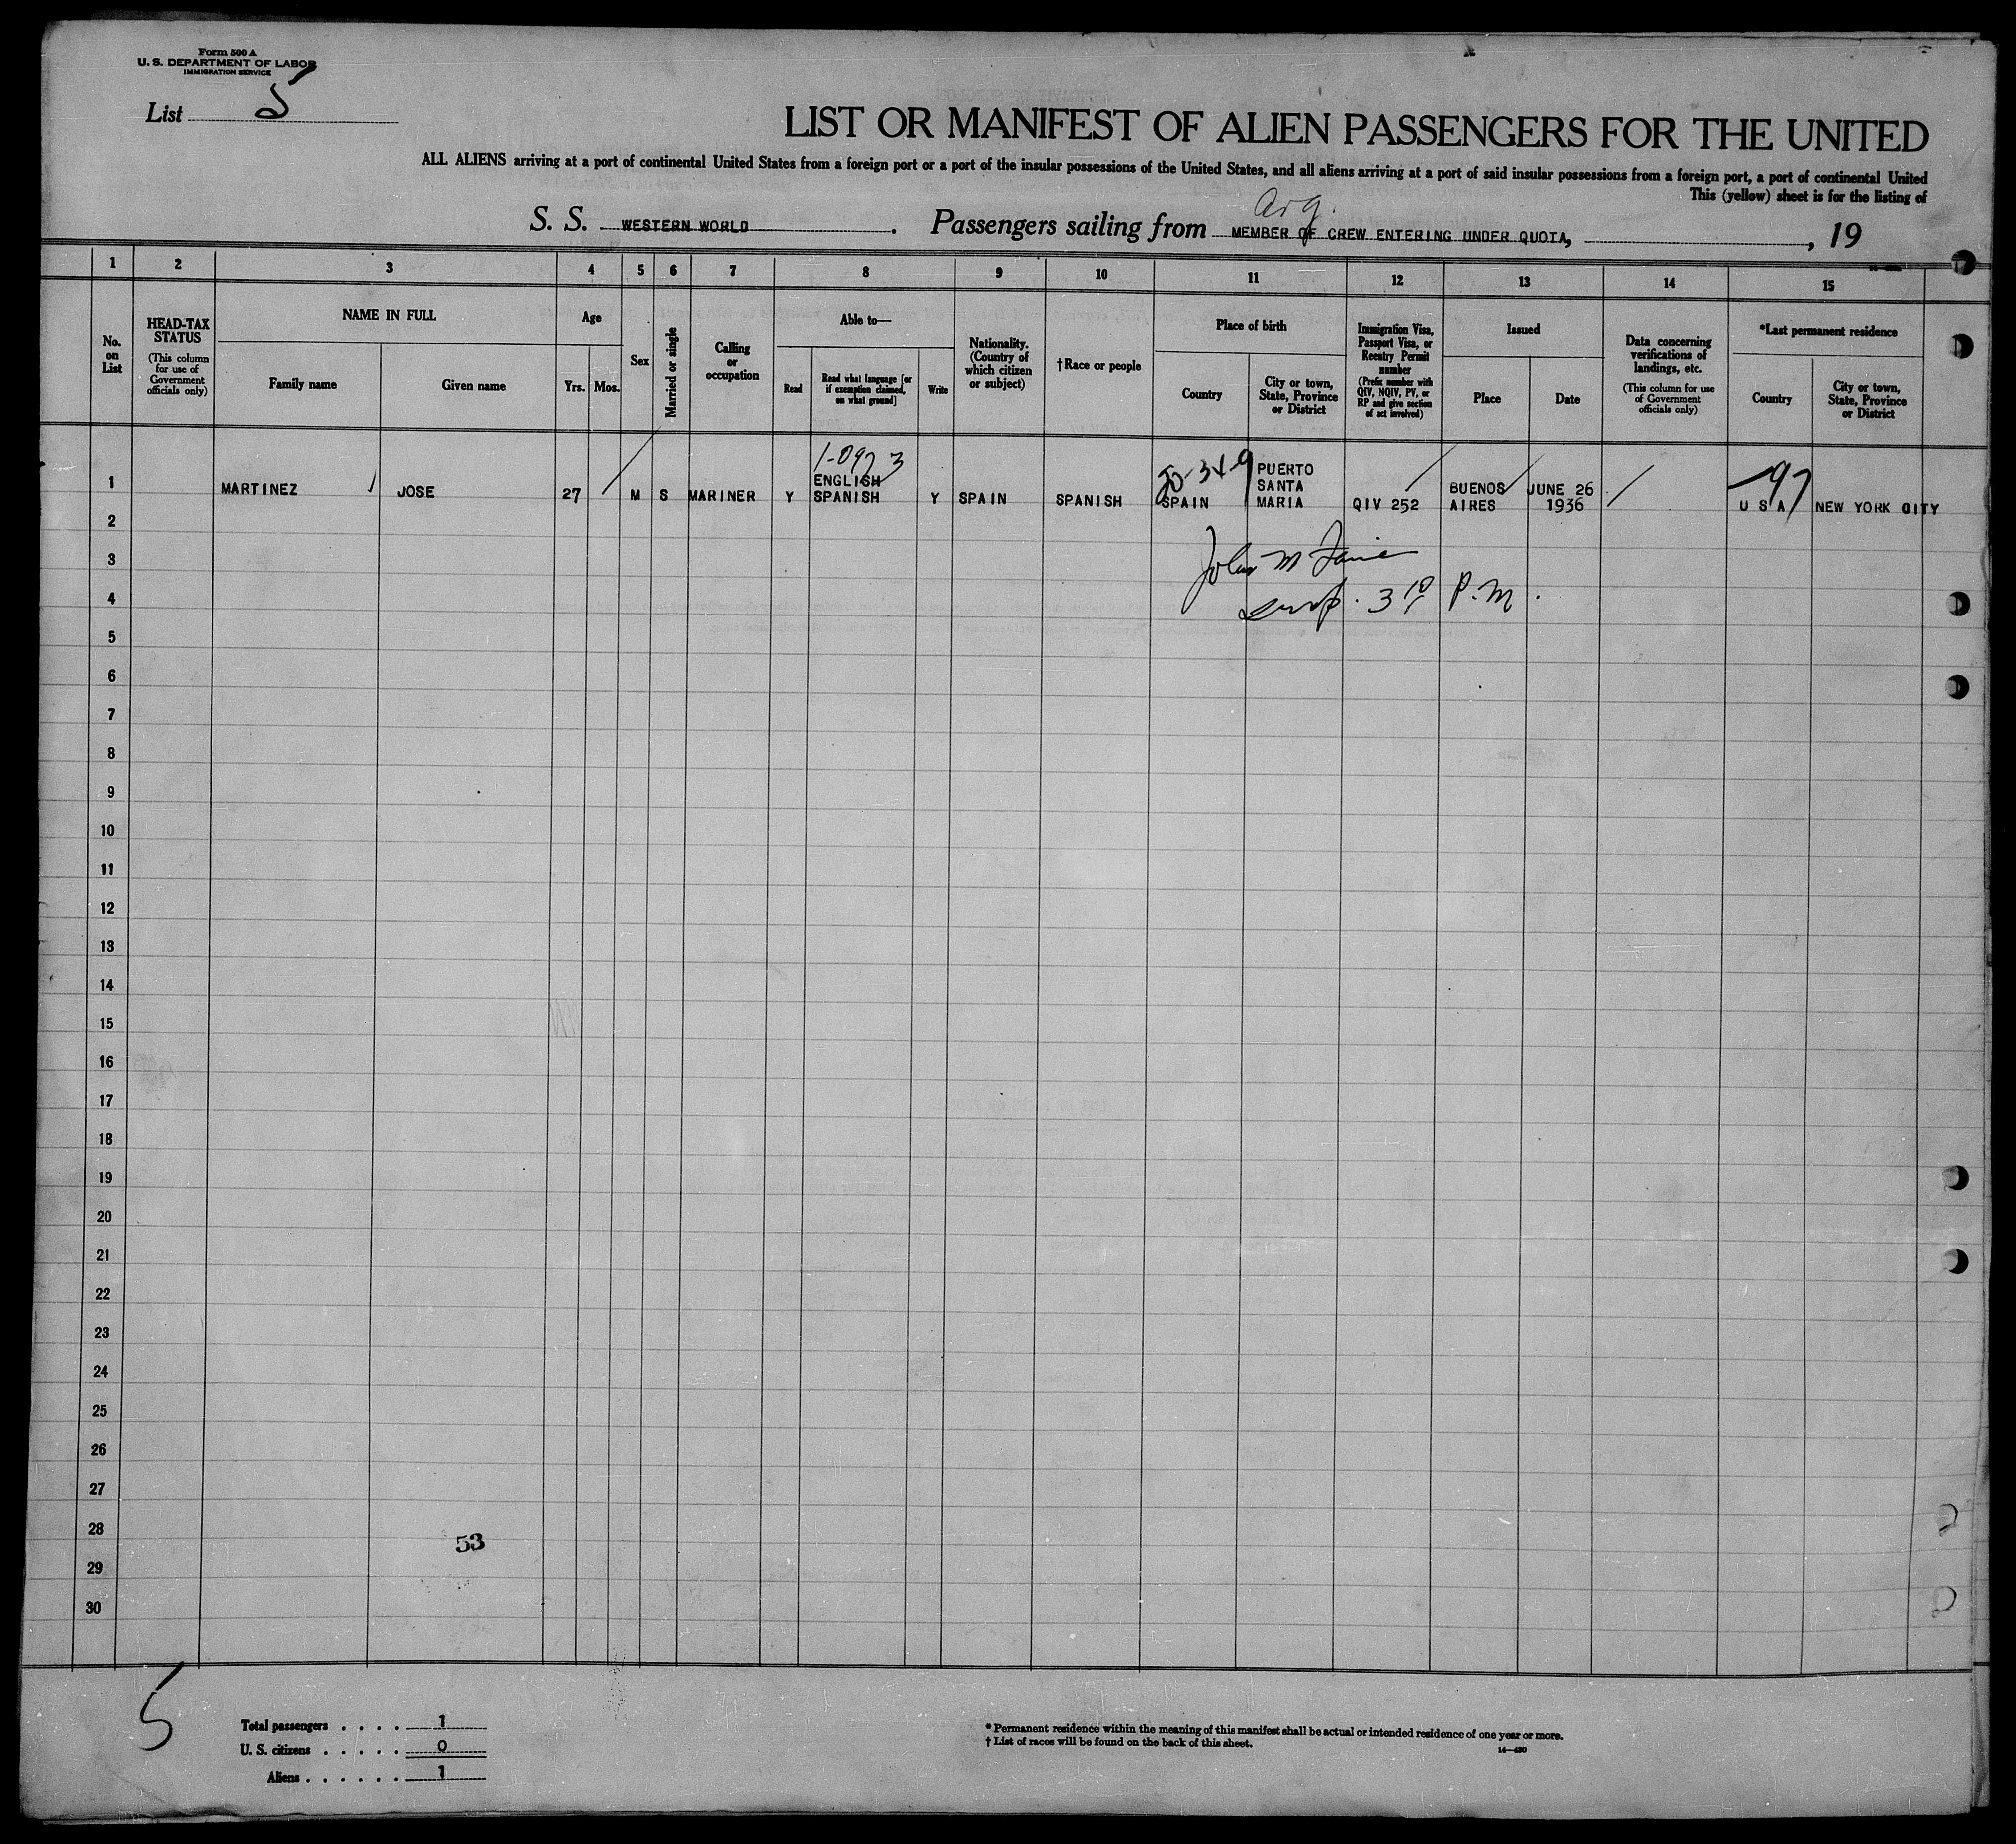 Form 500 A
U. S. DEPARTMENT OF LABOR
IMMIGRATION SERVICE
List 5
LIST OR MANIFEST OF ALIEN PASSENGERS FOR THE UNITED
ALL ALIENS arriving at a port of continental United States from a foreign port or a port of the insular possessions of the United States, and all aliens arriving at a port of said insular possessions from a foreign port, a port of continental United
This (yellow) sheet is for the listing of
Arg.
S. S. WESTERN WORLD. Passengers sailing from MEMBER OF CREW ENTERING UNDER QUOTA, , 19
1 2 3 4 5 6 7 8 9 10 11 12 13 14 15
No. on List
HEAD-TAX STATUS
(This column for use of Government officials only)
NAME IN FULL
Family name
Given name
Age
Yrs. Mos.
Sex
Married or single
Calling or occupation
Able to—
Read
Read what language [or if exemption claimed, on what ground]
Write
Nationality. (Country of which citizen or subject)
†Race or people
Place of birth
Country
City or town, State, Province or District
Immigration Visa, Passport Visa, or Reentry Permit number
(Prefix number with QIV, NQIV, PV, or RP and give section of act involved)
Issued
Place
Date
Data concerning verifications of landings, etc.
(This column for use of Government officials only)
*Last permanent residence
Country
City or town, State, Province or District
1 MARTINEZ JOSE 27 M S MARINER Y ENGLISH SPANISH Y SPAIN SPANISH SPAIN PUERTO SANTA MARIA QIV 252 BUENOS AIRES JUNE 26 1936 U S A NEW YORK CITY
97
2
3
John M
4
3 10 P.M.
5
6
7
8
9
10
11
12
13
14
15
16
17
18
19
20
21
22
23
24
25
26
27
28
53
29
30
5
Total passengers . . . . 1
U. S. citizens . . . . . 0
Aliens . . . . . . 1
* Permanent residence within the meaning of this manifest shall be actual or intended residence of one year or more.
† List of races will be found on the back of this sheet.
14—430